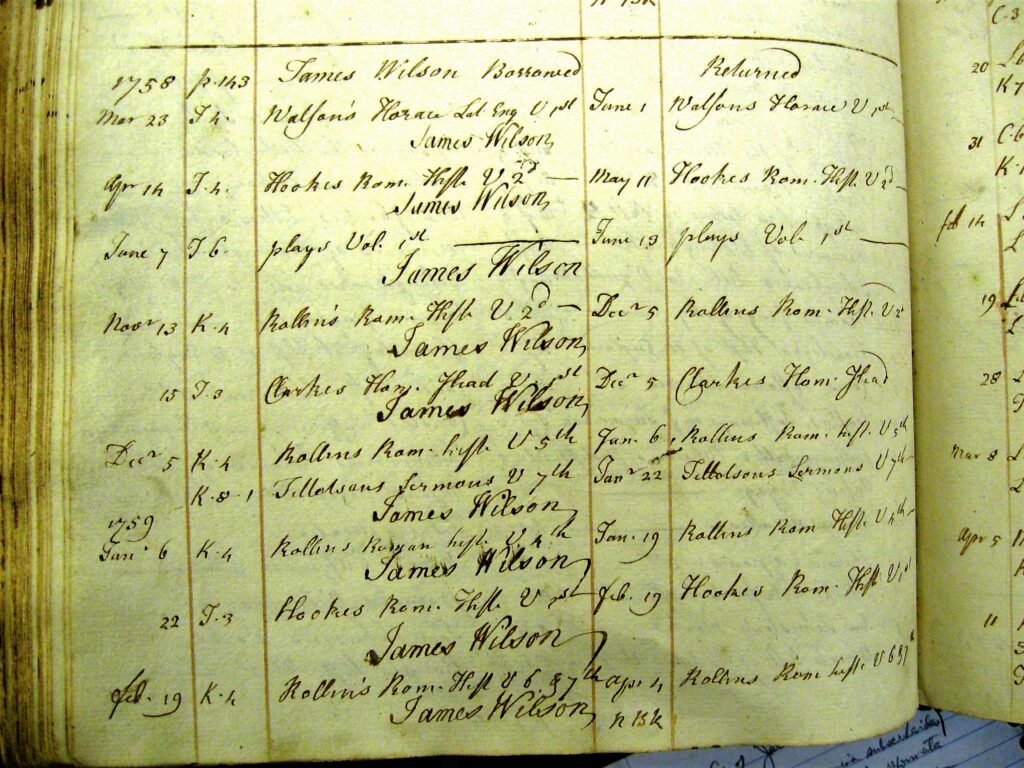 n Bk
1758 p. 143 James Wilson Borrowed Returned
Mar 23 I 4. Watson's Horace Lat Eng V 1st June 1 Watsons Horace V 1st
James Wilson
Apr 14 I. 4. Hookes Rom. Hist. V 2d May 11 Hookes Rom. Hist. V 2d
James Wilson
June 7 I 6. plays Vol. 1st June 13 plays Vol. 1st
James Wilson
Novr 13 K. 4 Rollin's Rom. Hist. V 2d Decr 5 Rollins Rom. Hist V 2d
James Wilson
15 I. 3 Clarkes Hom. Iliad V 1st Decr 5 Clarkes Hom. Iliad
James Wilson
Decr 5 K. 4 Rollins Rom. hist. V 5th Jan. 6 Rollins Rom. hist. V 5th
K. 8. 1 Tillotsons Sermons V 7th Janr 22 Tillotsons Sermons V 7th
James Wilson
1759
Janr 6 K. 4 Rollins Roman hist. V. 4th Jan. 19 Rollins Rom Hist. V 4th
James Wilson
22 I. 3 Hookes Rom. Hist. V 1st feb. 19 Hookes Rom. Hist V 1st
James Wilson
feb. 19 K. 4 Rollin's Rom. Hist V 6 & 7th Apr 4 Rollins Rom hist. V 6 & 7th
James Wilson n Bk
C. 3
20
K 7
31 C. 6
K. 1
feb 14
19
28
Mar 8
Apr 5
11